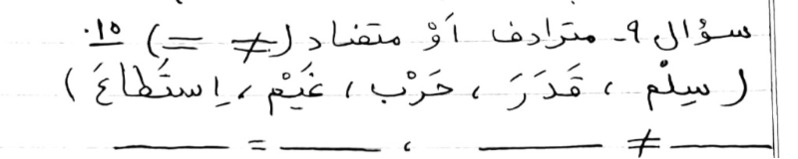 سؤال ٩- مترادف أوْ متضاد (≠ =) ١٥.
(سِلْم ، قَدَرَ ، حَرْب ، غَيْم ، اِستَطاعَ)
____ ≠ ____ ، ____ = ____